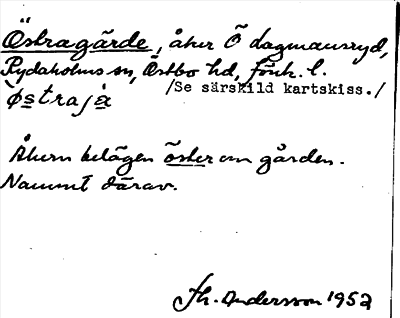 Östragärde, åker Ö dagmansryd,
Rydaholms sn, Östbo hd, Jönk. l.
/Se särskild kartskiss./
Østrajà
Åkern belägen öster om gården.
Namnet därav.
Th. Andersson 1952